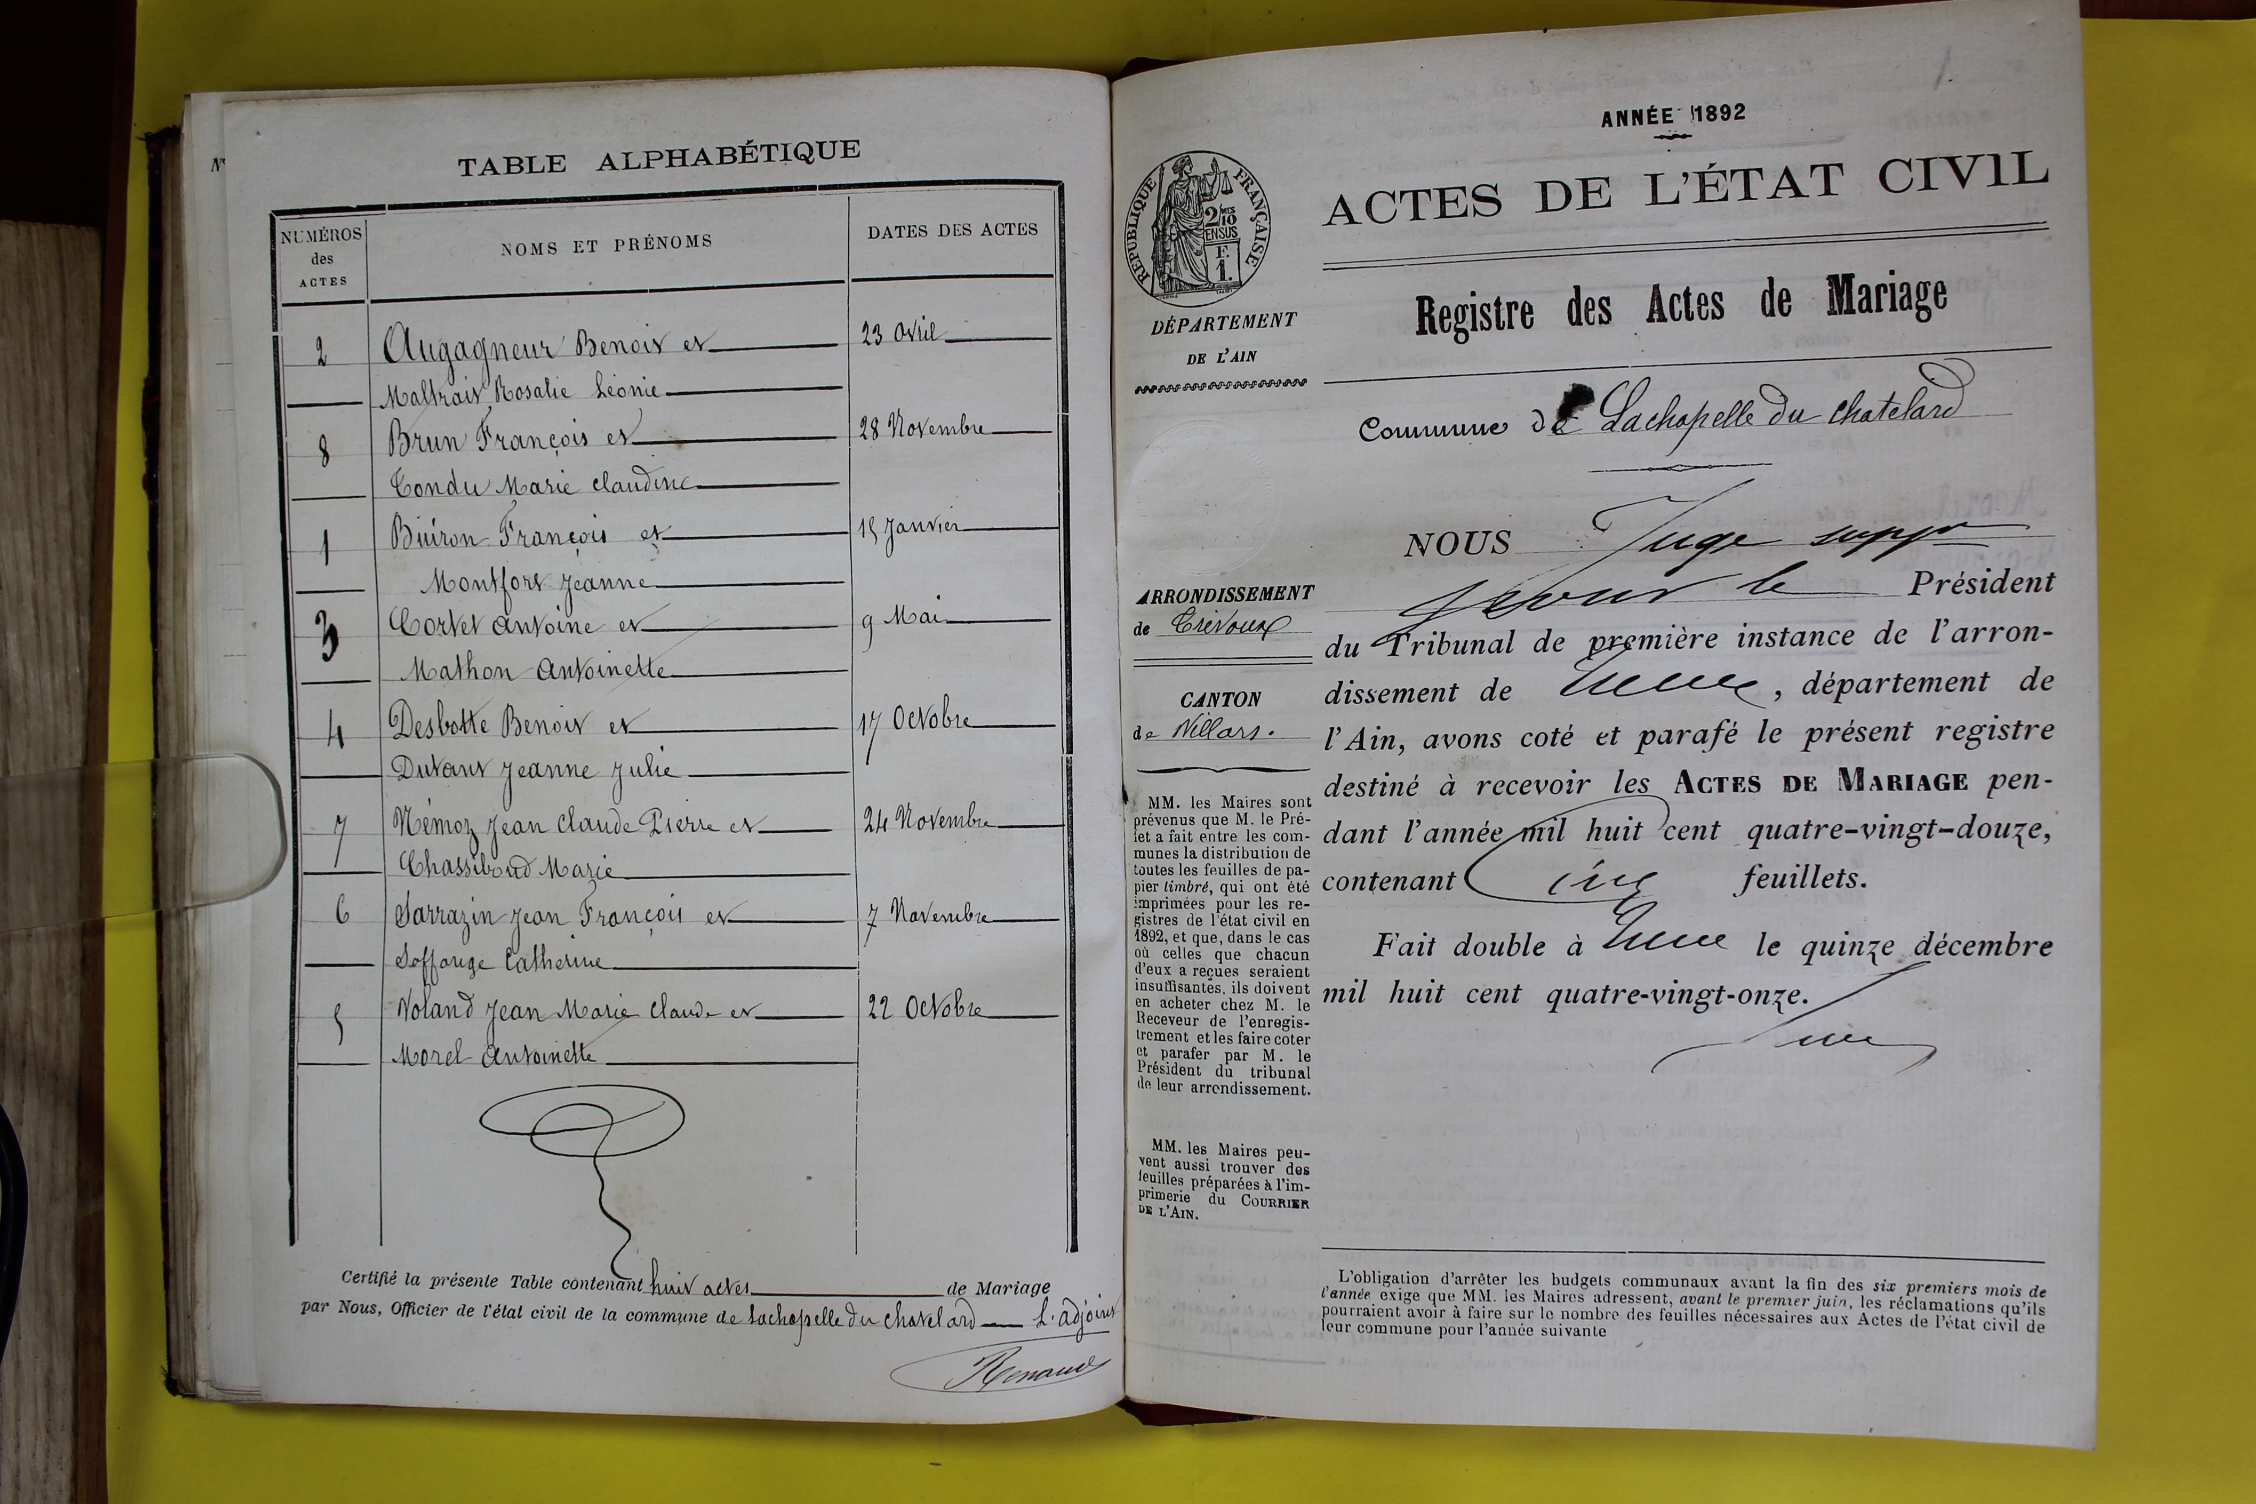 TABLE ALPHABÉTIQUE
NUMÉROS
des
ACTES
NOMS ET PRÉNOMS
DATES DES ACTES
2 Augagneur Benoit et 23 Avril
Maltrait Rosalie Léonie
8 Brun François et 28 Novembre
Condu Marie Claudine
1 Buiron François et 15 Janvier
Montfort Jeanne
3 Cortet Antoine et 9 Mai
Mathon Antoinette
4 Desbotte Benoit et 17 Octobre
Dutant Jeanne Julie
7 Némoz Jean Claude Pierre et 24 Novembre
Marie
6 Sarrazin Jean François et 7 Novembre
Soffange Catherine
5 Voland Jean Marie Claude et 22 Octobre
Morel Antoinette
Certifié la présente Table contenant huit actes de Mariage
par Nous, Officier de l'état civil de la commune de Lachapelle du Chatelard L'adjoint
Renaud
1
ANNÉE 1892
RÉPUBLIQUE FRANÇAISE
2/10
EN SUS
F.
1.
ACTES DE L'ÉTAT CIVIL
Registre des Actes de Mariage
DÉPARTEMENT
DE L'AIN
Commune de Lachapelle du Chatelard
ARRONDISSEMENT
de Trévoux
CANTON
de Villars.
MM. les Maires sont
prévenus que M. le Pré-
fet a fait entre les com-
munes la distribution de
toutes les feuilles de pa-
pier timbré, qui ont été
imprimées pour les re-
gistres de l'état civil en
1892, et que, dans le cas
où celles que chacun
d'eux a reçues seraient
insuffisantes, ils doivent
en acheter chez M. le
Receveur de l'enregis-
trement et les faire coter
et parafer par M. le
Président du tribunal
de leur arrondissement.
MM. les Maires peu-
vent aussi trouver des
feuilles préparées à l'im-
primerie du COURRIER
DE L'AIN.
NOUS Juge suppt
pour le Président
du Tribunal de première instance de l'arron-
dissement de , département de
l'Ain, avons coté et parafé le présent registre
destiné à recevoir les ACTES DE MARIAGE pen-
dant l'année mil huit cent quatre-vingt-douze,
contenant cinq feuillets.
Fait double à le quinze décembre
mil huit cent quatre-vingt-onze.
L'obligation d'arrêter les budgets communaux avant la fin des six premiers mois de
l'année exige que MM. les Maires adressent, avant le premier juin, les réclamations qu'ils
pourraient avoir à faire sur le nombre des feuilles nécessaires aux Actes de l'état civil de
leur commune pour l'année suivante